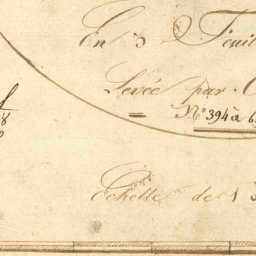 En 3 Feuil
Levée par
N° 394 à 6
8
Echelle de 1